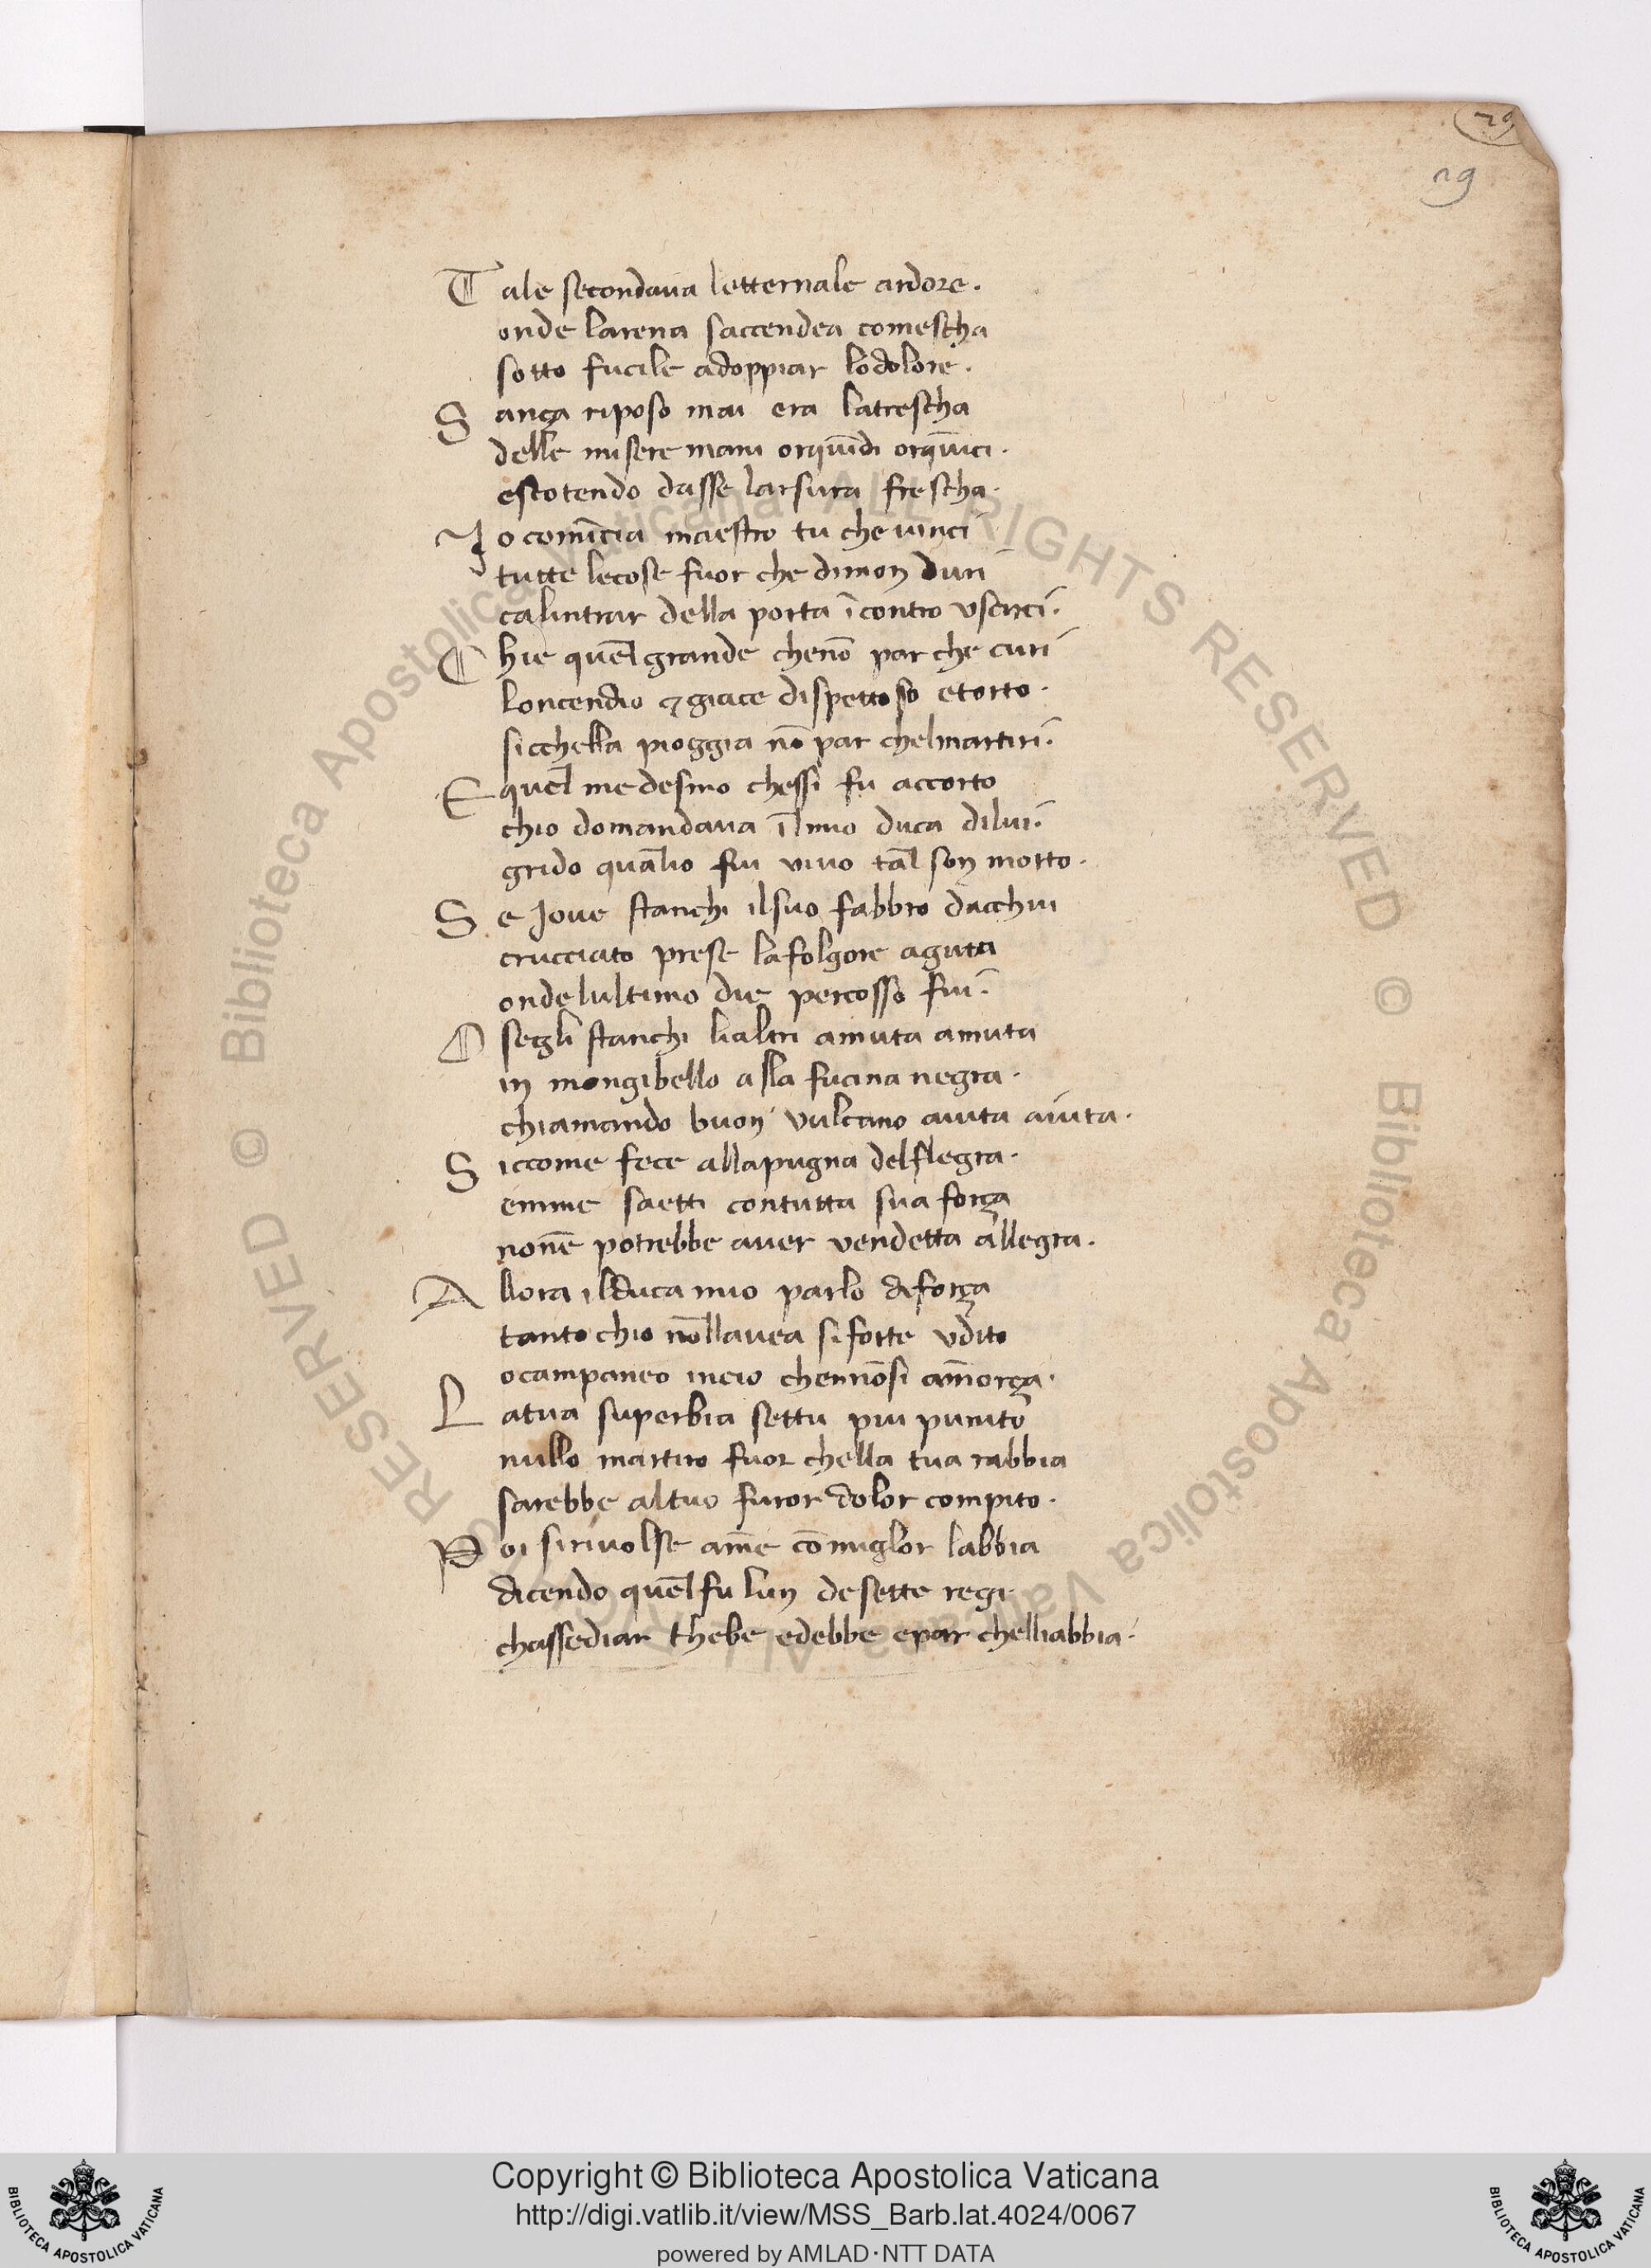 29
29
Tale secondaua letternale ardore.
onde larena saccendea comescha
sotto fucile adoppiar lodolore.
Sança riposo mai era latrescha
delle misere mani orquīdi orquīnci.
escotendo dasse larsura frescha.
Io comīcia maestro tu che vinci
tutte lecose fuor che dimon duri
calintrar della porta īcontro uscirci.
Chie quel grande chenō par che curi
loncendio ⁊ giace dispettoso etorto.
sicchella pioggia nō par chelmarturi.
E quel medesmo chessi fu accorto
chio domandaua ilmio duca dilui.
grido qualio fui vivo tal son morto.
Se Jove stanchi ilsuo fabbro dacchui
crucciato prese lafolgore aguta
ondelultimo die percosso fui.
O segli stanchi lialtri amuta amuta
in mongibello alla fucina negra.
chiamando buon vulcano aiuta aiuta.
Siccome fece allapugna delflegra.
emme saetti contutta sua força
nonē potrebbe aver vendetta allegra.
Allora ilduca mio parlo diforça
tanto chio nōllauea siforte vdito
ocampaneo incio chennōsi amorça.
Latua superbia settu piu punito
nullo martiro fuor chella tua rabbia
sarebbe altuo furor dolor compito.
Poi sirivolse ame cōmiglor labbia
dicendo quel fu lun desette regi
chassediar thebe edebbe epar chelliabbia.
RESERVED © Biblioteca Apostolica Vaticana ALL RIGHTS RESERVED © Biblioteca Apostolica Vaticana ALL
Copyright © Biblioteca Apostolica Vaticana
http://digi.vatlib.it/view/MSS_Barb.lat.4024/0067
powered by AMLAD·NTT DATA
BIBLIOTECA APOSTOLICA VATICANA
BIBLIOTECA APOSTOLICA VATICANA